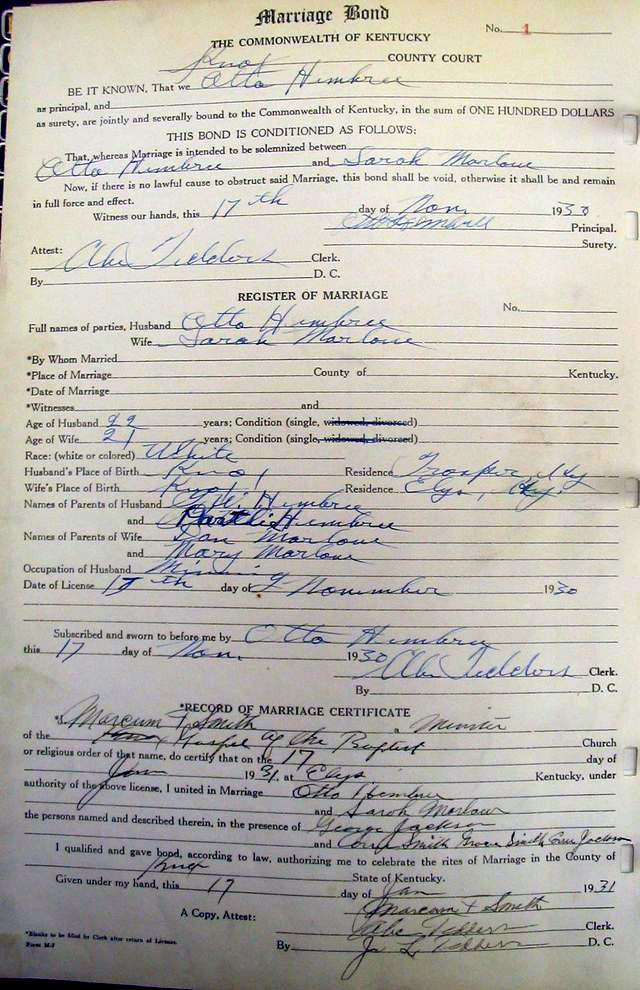 Marriage Bond
No. 1
THE COMMONWEALTH OF KENTUCKY
Knox COUNTY COURT
BE IT KNOWN, That we Otto Hembree
as principal, and
as surety, are jointly and severally bound to the Commonwealth of Kentucky, in the sum of ONE HUNDRED DOLLARS
THIS BOND IS CONDITIONED AS FOLLOWS:
That, whereas Marriage is intended to be solemnized between
Otto Hembree and Sarah Marlowe
Now, if there is no lawful cause to obstruct said Marriage, this bond shall be void, otherwise it shall be and remain
in full force and effect.
Witness our hands, this 17th day of Nov. 1930
Otto Hembree Principal.
Surety.
Attest: Abe Tedders Clerk.
By D. C.
REGISTER OF MARRIAGE
No.
Full names of parties, Husband Otto Hembree
Wife Sarah Marlowe
*By Whom Married
*Place of Marriage County of Kentucky.
*Date of Marriage
*Witnesses and
Age of Husband 22 years; Condition (single, widowed, divorced)
Age of Wife 21 years; Condition (single, widowed, divorced)
Race: (white or colored) White
Husband's Place of Birth Knox Residence Trosper, Ky
Wife's Place of Birth Knox Residence Elys, Ky
Names of Parents of Husband Hembree
and Hembree
Names of Parents of Wife Dan Marlowe
and Mary Marlowe
Occupation of Husband Mining
Date of License 17th day of November 1930
Subscribed and sworn to before me by Otto Hembree
this 17 day of Nov. 1930
Abe Tedders Clerk.
By D. C.
*RECORD OF MARRIAGE CERTIFICATE
*I, Marcum T. Smith a Minister
of the Gospel of the Baptist Church
or religious order of that name, do certify that on the 17 day of
Jan 1931, at Elys Kentucky, under
authority of the above license, I united in Marriage Otto Hembree
and Sarah Marlow
the persons named and described therein, in the presence of George Jackson
and Smith Grace Smith Jackson
I qualified and gave bond, according to law, authorizing me to celebrate the rites of Marriage in the County of
Knox State of Kentucky.
Given under my hand, this 17 day of Jan 1931
Marcum T Smith
A Copy, Attest: Abe Tedders Clerk.
By J. L. Tedders D. C.
*Blanks to be filled by Clerk after return of License.
Form M-2